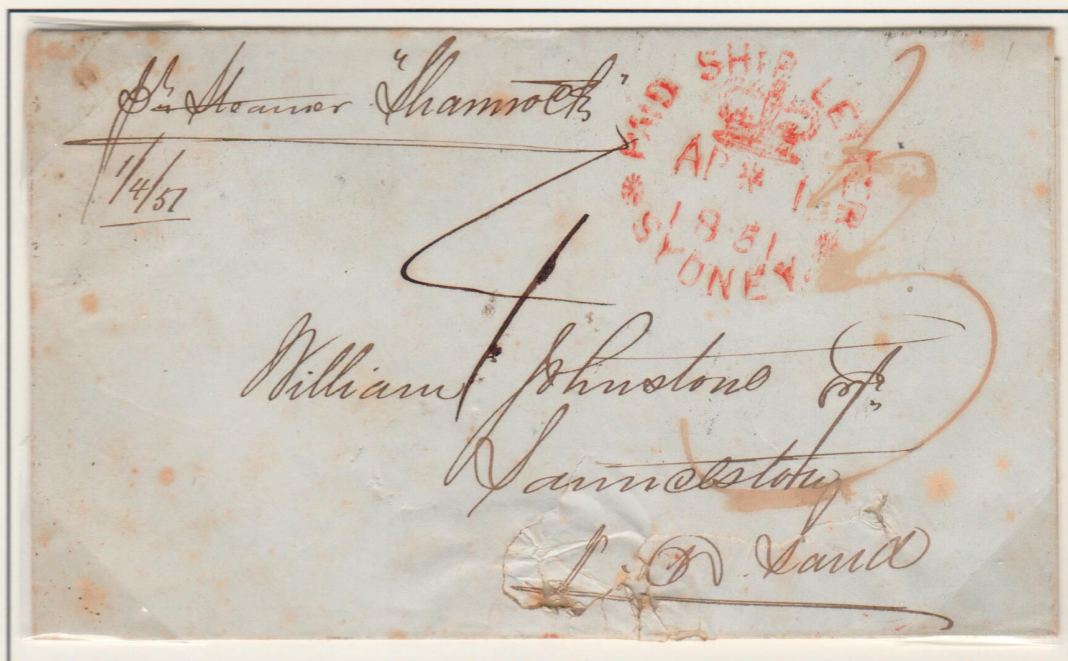 Pr Steamer "Shamrock"
1/4/51
PAID SHIP LETTER
AP * 1
1851
* SYDNEY *
4
3
William Johnstone Esqr
Launceston
V. D. Land